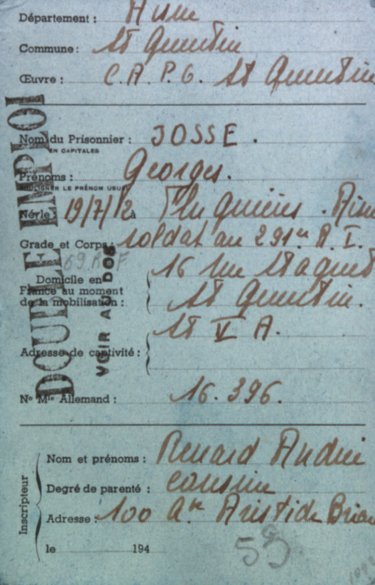 Département : Aisne
Commune : St Quentin
Œuvre : C.A.P.G. St Quentin
DOUBLE EMPLOI
VOIR AU DOS
Nom du Prisonnier : JOSSE.
EN CAPITALES
Prénoms : Georges.
SOULIGNER LE PRÉNOM USUEL
Né le : 19/7/12 à
Grade et Corps : soldat au 291e R.I.
Domicile en
France au moment
de la mobilisation :
16 rue
St Quentin.
St V A.
Adresse de captivité :
No Mle Allemand : 16.396.
Inscripteur
Nom et prénoms : Renard
Degré de parenté : cousine
Adresse : 100 Aristide Brian
le 194
53